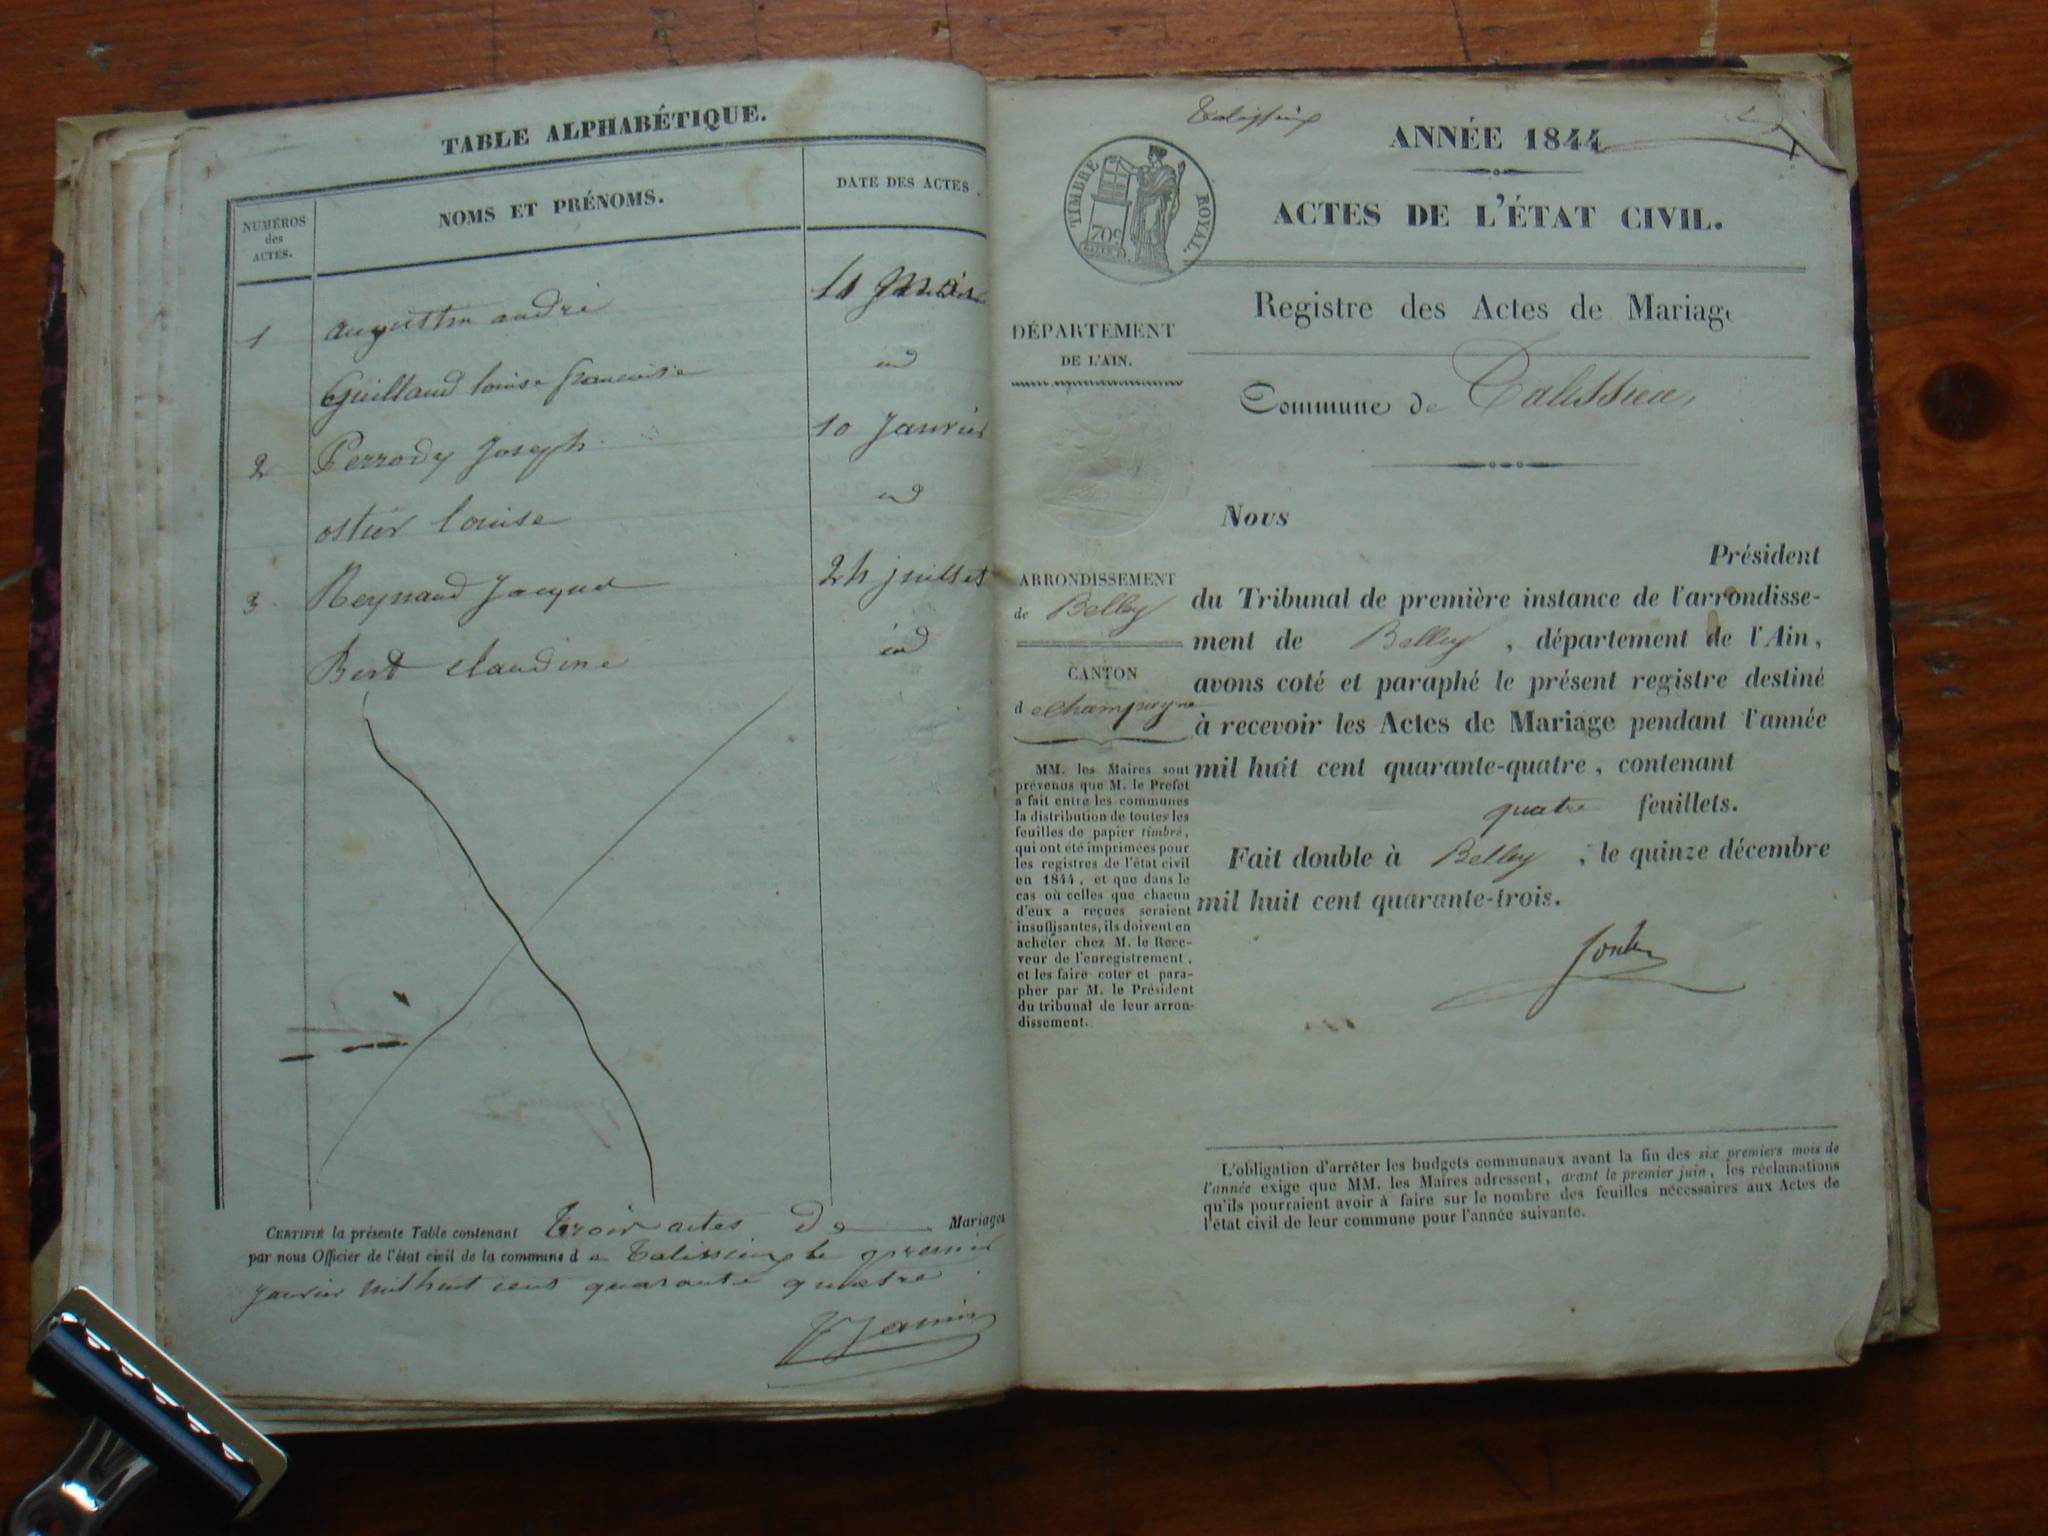 TABLE ALPHABÉTIQUE.
NUMÉROS
des
ACTES.
NOMS ET PRÉNOMS.
DATE DES ACTES.
1 augustin andré
Guilland louise francoise id
2 Perrody Joseph 10 Janvier
ostier louise id
3 Reynaud Jacques 24 juillet
Bert claudine id
CERTIFIÉ la présente Table contenant trois actes de Mariages
par nous Officier de l'état civil de la commune de talissieu le premier
janvier mil huit cent quarante quatre
Janin
Talissieu
ANNÉE 1844
TIMBRE ROYAL.
70c
ACTES DE L'ÉTAT CIVIL.
Registre des Actes de Mariage
Commune de Talissieu
DÉPARTEMENT
DE L'AIN.
ARRONDISSEMENT
de Belley
CANTON
de Champagne
MM. les Maires sont
prévenus que M. le Préfet
a fait entre les communes
la distribution de toutes les
feuilles de papier timbré,
qui ont été imprimées pour
les registres de l'état civil
en 1844, et que dans le
cas où celles que chacun
d'eux a reçues seraient
insuffisantes, ils doivent en
acheter chez M. le Rece-
veur de l'enregistrement,
et les faire coter et para-
pher par M. le Président
du tribunal de leur arron-
dissement.
Nous
Président
du Tribunal de première instance de l'arrondisse-
ment de Belley, département de l'Ain,
avons coté et paraphé le présent registre destiné
à recevoir les Actes de Mariage pendant l'année
mil huit cent quarante-quatre, contenant
quatre feuillets.
Fait double à Belley, le quinze décembre
mil huit cent quarante-trois.
L'obligation d'arrêter les budgets communaux avant la fin des six premiers mois de
l'année exige que MM. les Maires adressent, avant le premier juin, les réclamations
qu'ils pourraient avoir à faire sur le nombre des feuilles nécessaires aux Actes de
l'état civil de leur commune pour l'année suivante.